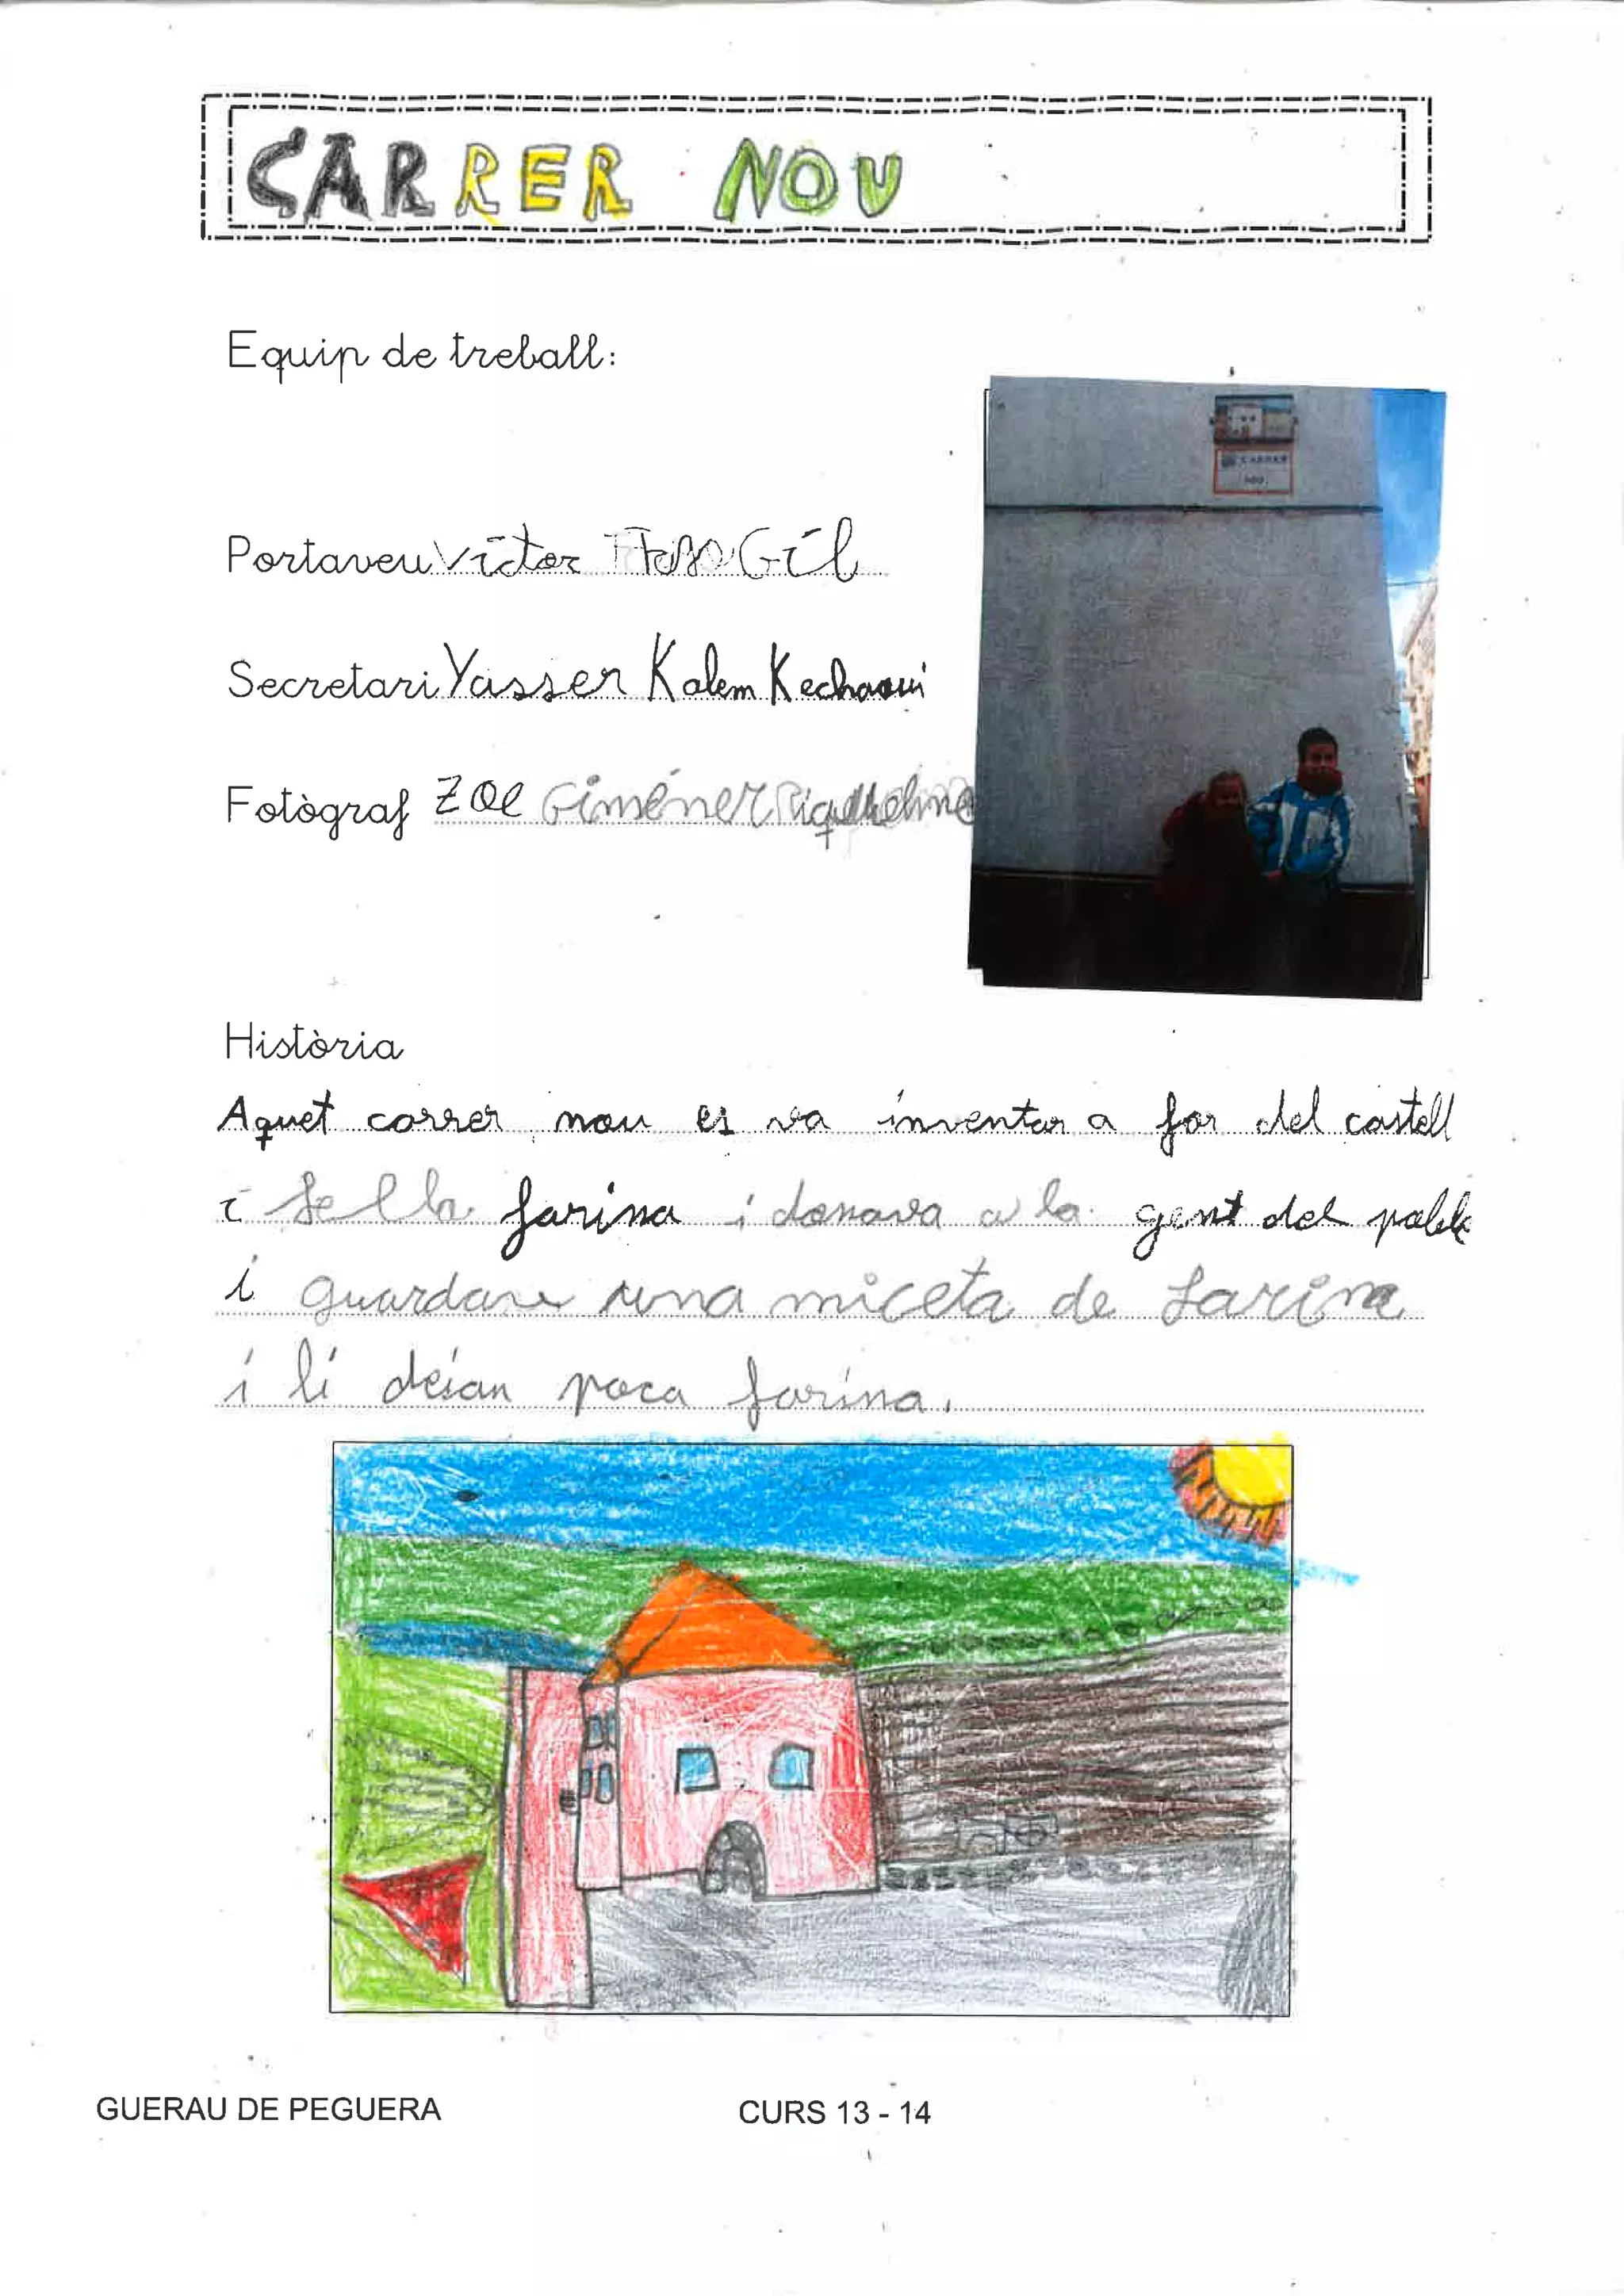 CARRER NOU
Equip de treball:
CARRER
NOU
Portaveu Víctor Gíl
Secretari Yasser Kalem Kechaoui
Fotògraf Zoe Giménez
Història
Aquet carrer nou es va inventar a for del castell
i farina i donava a la gent del poble
i guardava una miceta de farina
i li deian poca farina.
GUERAU DE PEGUERA
CURS 13 - 14